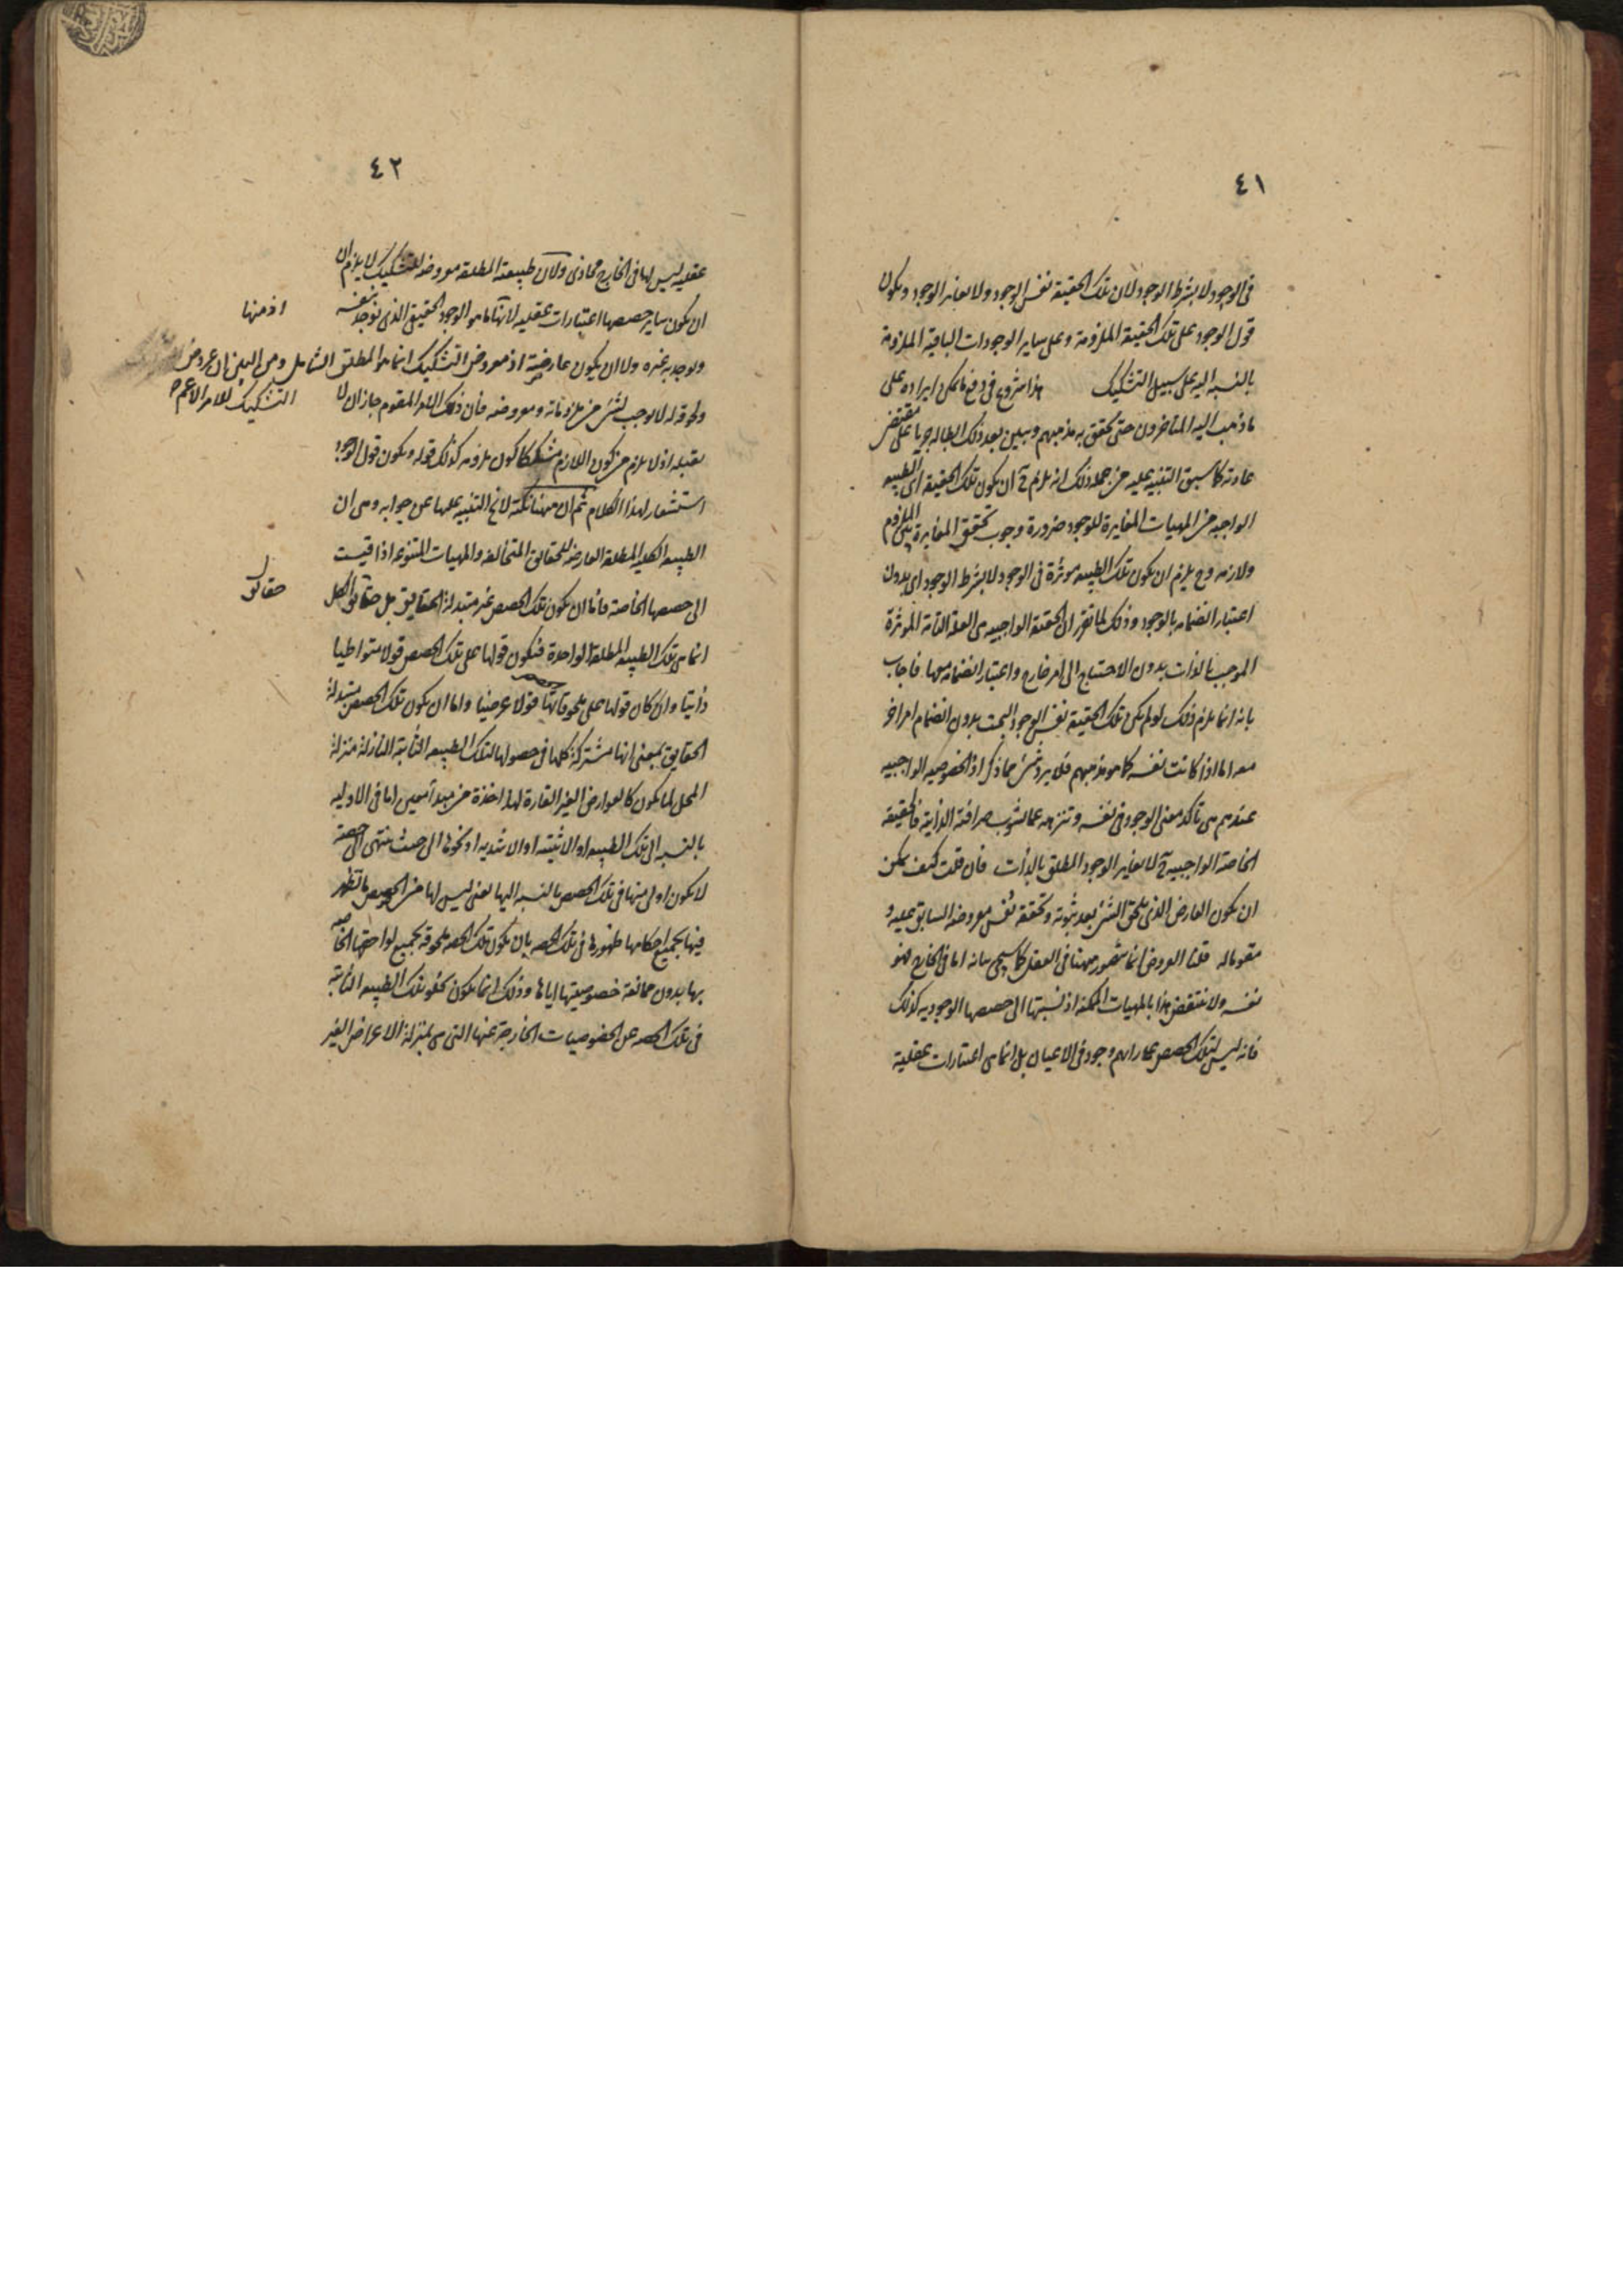 ٤١
فى الوجود لا بشرط الوجود لان تلك الحقيقة نفس الوجود ولا يغاير الوجود ويكون
قول الوجود على تلك الحقيقة الملزومة وعلى ساير الوجودات الباقية الملزومة
بالنسبه اليه على سبيل التشكيك هذا شروع فى دفع ما يمكن ايراده على
ما ذهب اليه المتاخرون حتى يحقق به مذهبهم ويبين بعد ذلك ابطاله جريا على مقتضى
عادته كما سبق التنبيه عليه من جملة ذلك انه يلزم ح ان يكون تلك الحقيقة اى الطبيعه
الواجبه من المهيات المغايرة للوجود ضرورة وجوب تحقق المغايرة بين الملزوم
ولازمه وح يلزم ان يكون تلك الطبيعه موثرة فى الوجود لا بشرط الوجود اى بدون
اعتبار انضمامه بالوجود وذلك لما تقرر ان الحقيقة الواجبيه هى العلة التامة الموثرة
الموجب بالذات بدون الاحتياج الى امر خارج واعتبار انضمامه معها فاجاب
بانه انما يلزم ذلك لو لم يكن تلك الحقيقة نفس الوجود البحت بدون انضمام امر اخر
معه اما اذا كانت نفسه كما هو مذهبهم فلا يرد شئ مما ذكر اذ الخصوصيه الواجبيه
عندهم هى تاكد معنى الوجود فى نفسه وتنزهه عما يشوب صرافته الذاتية فالحقيقة
الخاصة الواجبيه ح لا يغاير الوجود المطلق بالذات فان قلت كيف يمكن
ان يكون العارض الذى يلحق الشئ بعد ثبوته وتحققه نفس معروضه السابق عليه و
مقوما له قلنا العروض انما يتصور ههنا فى العقل كما سيجى بيانه اما فى الخارج فهو
نفسه ولا ينتقض هذا بالمهيات الممكنة اذ نسبتها الى حصصها الوجوديه كذلك
فانه ليس لتلك الحصص عما رائهم وجود فى الاعيان بل انما هى اعتبارات عقلية
٤٢
عقليه ليس لها فى الخارج محاذى ولان طبيعة المطلقه معروضه للتشكيك لا يلزم ان
ان يكون ساير حصصها اعتبارات عقليه لانها ما هو الوجود الحقيقى الذى يوجد بنفسه
اذ منها
ويوجد به غيره ولا ان يكون عارضية اذ معروض التشكيك انما هو المطلق الشامل ومن البين ان عروض
التشكيك للامر الاعم
ولحوقه له لا يوجب لشئ من ملزوماته ومعروضه فان ذلك الامر المقوم جاز ان لا
يقبله اذ لا يلزم من كون اللازم مشككا كون ملزومه كذلك قوله ويكون قول الوجود
استشعار لهذا الكلام ثم ان ههنا نكتة لا يخ التنبيه عليها عن جوابه وهى ان
الطبيعه الكليه المطلقة العارضه للحقائق المتخالفه والمهيات المتنوعه اذا قيست
الى حصصها الخاصة فاما ان يكون تلك الحصص غير متبدلة الحقايق بل حقائق الكل
حقائق
انما هى تلك الطبيعه المطلقة الواحدة فيكون قولها على تلك الحصص قولا متواطيا
ذاتيا وان كان قولها على ملحوقاتها قولا عرضيا واما ان يكون تلك الحصص متبدلة
الحقايق بمعنى انها مشتركة كلها فى حصولها لتلك الطبيعه الثابتة النازلة منزلة
المحل لما يكون كالعوارض الغير القارة لها اخذة من مبدأ معين اما فى الاوليه
بالنسبه الى تلك الطبيعه او الاثبتيه او الاشديه او نحوها الى حيث ينتهى الى حصة
لا يكون اولى منها فى تلك الحصص بالنسبه اليها يعنى ليس لها من الحصص ما تظهر
فيها بجميع احكامها ظهورها فى تلك الحصه بان يكون تلك الحصه ملحوقة بجميع لواحقها الخاصه
بها بدون ممانعة خصوصيتها اياها وذلك انما يكون بخلو تلك الطبيعه الثابتة
فى تلك الحصه عن الخصوصيات الخارجة عنها التى هى بمنزلة الاعراض الغير